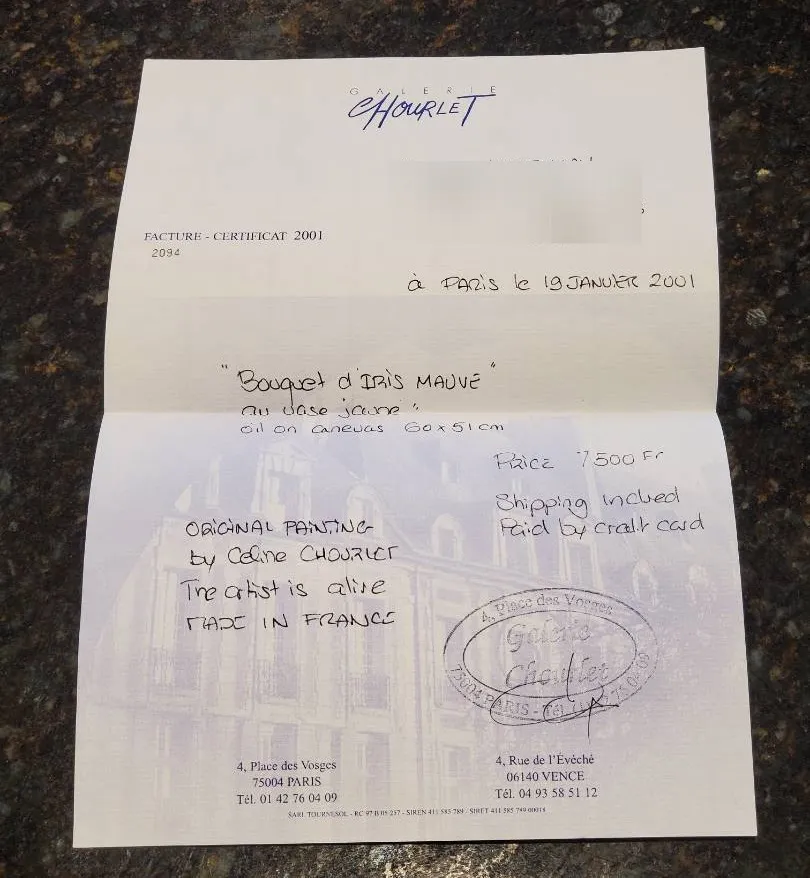 GALERIE
CHOURLET
FACTURE - CERTIFICAT 2001
2094
à PARIS le 19 JANUIER 2001
"Bouquet d'IRIS MAUVE"
au vase jaune"
oil on canevas 60 x 51 cm
PRICE 7500 Fr
Shipping inclued
Paid by credit card
ORIGINAL PAINTING
by Celine CHOURLET
The artist is alive
MADE IN FRANCE
4, Place des Vosges
Galerie
Chourlet
75004 PARIS - Tél.
4, Place des Vosges
75004 PARIS
Tél. 01 42 76 04 09
4, Rue de l'Évêché
06140 VENCE
Tél. 04 93 58 51 12
SARL TOURNESOL - RC 97 B 05 257 - SIREN 411 585 789 - SIRET 411 585 789 00018